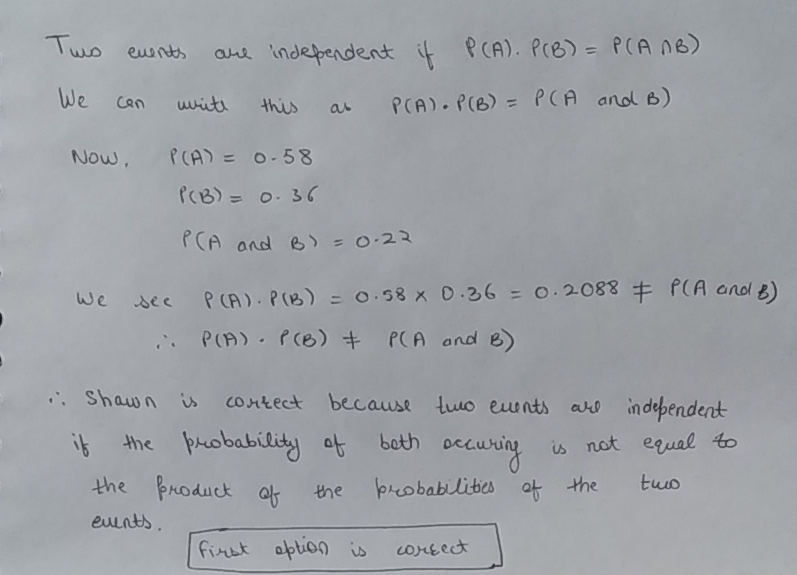 Two events are independent if P(A). P(B) = P(A ∩B)
We can write this as P(A). P(B) = P(A and B)
Now, P(A) = 0.58
P(B) = 0.36
P(A and B) = 0.22
We see P(A). P(B) = 0.58 x 0.36 = 0.2088 ≠ P(A and B)
∴ P(A). P(B) ≠ P(A and B)
∴ Shawn is correct because two events are independent
if the probability of both occuring is not equal to
the product of the probabilities of the two
events.
First option is correct